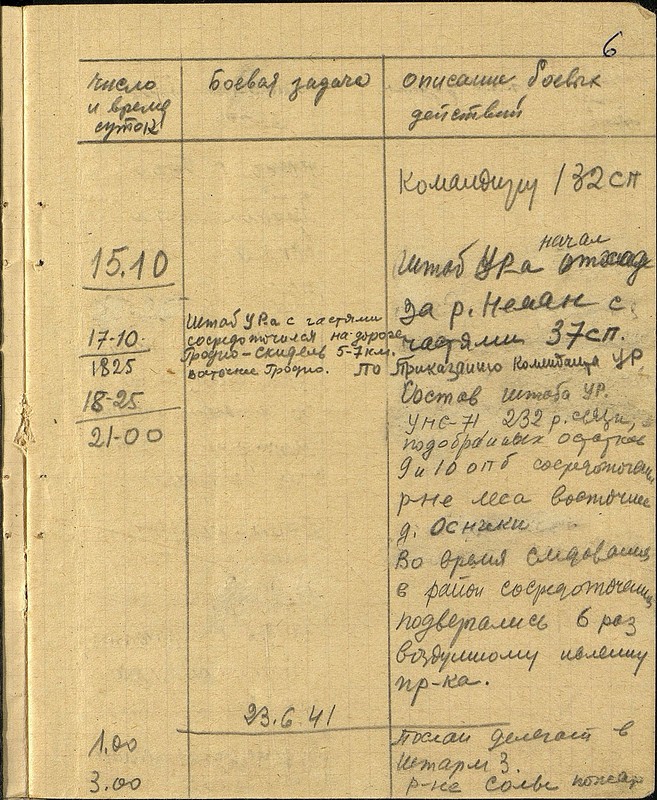 6
Число
и время
суток
Боевая задача
описание боевых
действий
Командиру 132 сп
15.10
Штаб УРа начал отход
за р. Неман с
частями 37 сп.
17-10.
1825
Штаб УРа с частями
сосредоточился на дороге
Гродно-Скидель 5-7 км.
восточнее Гродно.
По Приказанию Коменданта УР
18-25
21-00
Состав штаба УР.
УНС-71 232 р. связи,
подобранных остатков
9 и 10 опб
р-не леса восточнее
д. Осники
Во время следования
в район сосредоточения
подвергались 6 раз
воздушному
пр-ка.
23.6.41
1.00
Послан делегат в
Штарм 3.
3.00
р-не пожар